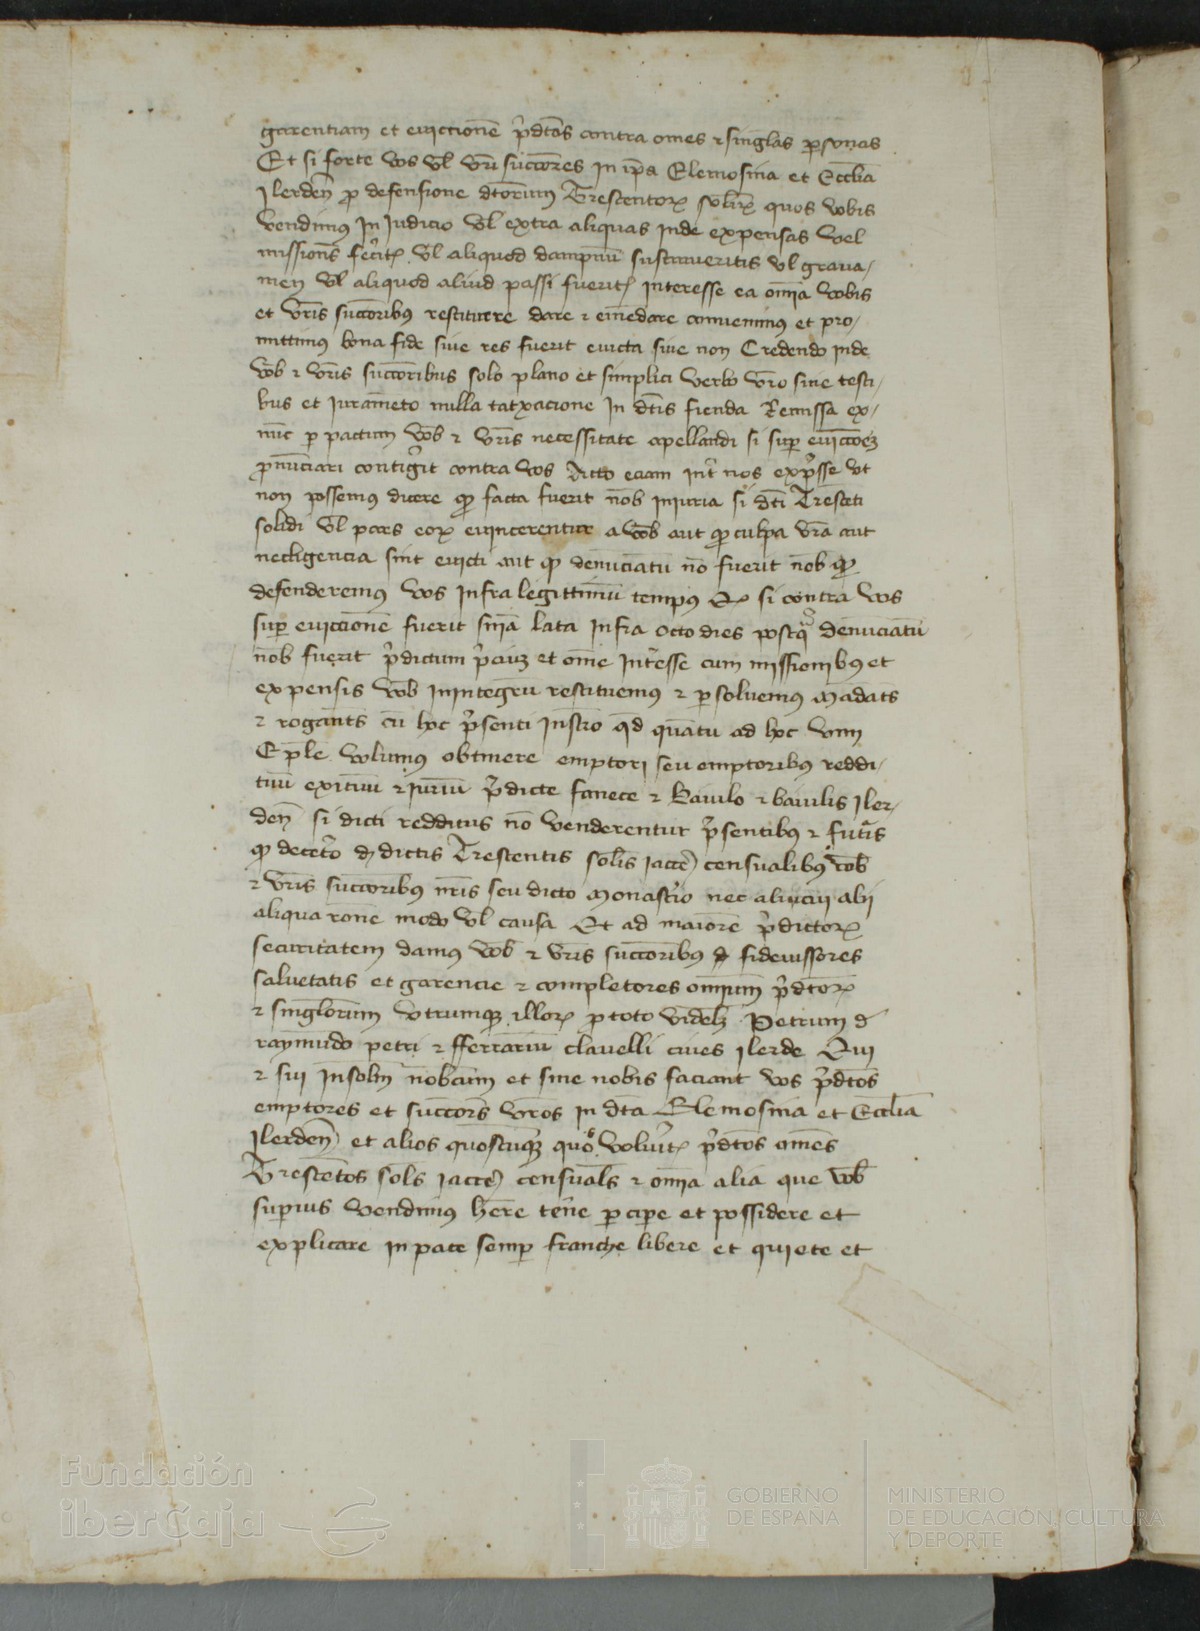 garentiam et euiccionē p̄dtōs contra omēs ⁊ singlas personas
Et si forte vos vl̄ vr̄i succōres in ip̄a Elemosina et Ecclīa
Ilerden̄ pro defensione dtōrum Trescentoꝝ solidoꝝ quos vobis
vendimus in iudicio vl̄ extra aliquas inde expensas vel
missiones fec̄itꝭ vl̄ aliquod dampnū sustinueritis vl̄ graua-
men vl̄ aliquod aliud passi fueritꝭ interesse ea om̄ia vobis
et vr̄is succōribus restituere dare ⁊ emēdare conuenimus et pro-
mittimus bona fide siue res fuerit euicta siue non Credendo inde
vob̄ ⁊ vr̄is succōribus solo plano et simplici verbo vr̄o sine testi-
bus et iuramēto nulla tatxacione in dt̄is fienda Remissa ex-
nūc per pactum vob̄ ⁊ vr̄is necessitate apellandi si super euiccōēꝫ
pronūciari contigerit contra vos Acto eciam int̄ nos exp̄sse vt
non possemus dicere quod facta fuerit nob̄ iniuria si dt̄i Trescēti
solidi vl̄ pars eoꝝ euincerentur a vob̄ aut quod culpa vr̄a aut
necligencia sint euicti aut quod denūciatū nō fuerit nob̄ quod
defenderemus vos infra legittimū tempus Et si contra vos
super euiccionē fuerit snīa lata infra octo dies postq̄ denūciatū
nob̄ fuerit p̄dictum p̄ciūꝫ et om̄e int̄esse cum missionibus et
expensis vob̄ inintegrū restituemus ⁊ persoluemus Mādātes
⁊ rogantes cū hoc p̄senti instr̄o qd̄ quātū ad hoc vim
Ep̄le volumus obtinere emptori seu emptoribus reddi-
tuū exituū ⁊ iuriū p̄dicte fanece ⁊ Baiulo ⁊ baiulis Iler-
den̄ si dicti redditus nō venderentur p̄sentibus ⁊ futīs
quod decet̄o de dictis Trescentis solis iacceñ censualibus vob̄
⁊ vr̄is succōribus nr̄is seu dicto Monast̄io nec alicui alij
aliqua ronē modo vl̄ causa Et ad maiorē p̄dictoꝝ
securitatem damus vob̄ ⁊ vr̄is succōribus fideiussores
saluetatis et garencie ⁊ completores omnium p̄dtōꝝ
⁊ singlorum vtrumque illoꝝ pro toto videlꝫ Petrum de
raymūdo petri ⁊ fferrariū clauelli ciues Ilerde Qui
⁊ sui insol̄m nobcum et sine nobis faciant vos p̄dtōs
emptores et succōres vr̄os in dt̄a Elemosina et Ecclīa
Ilerden̄ et alios quoscūqꝫ quo voluitꝭ p̄dtōs om̄es
Trescētos sols iacceñ censuales ⁊ om̄ia alia que vob̄
superius vendimus her̄e ten̄e percipe et possidere et
explicare in pace semper franche libere et quiete et
Fundación
iberCaja
GOBIERNO
DE ESPAÑA
MINISTERIO
DE EDUCACIÓN, CULTURA
Y DEPORTE